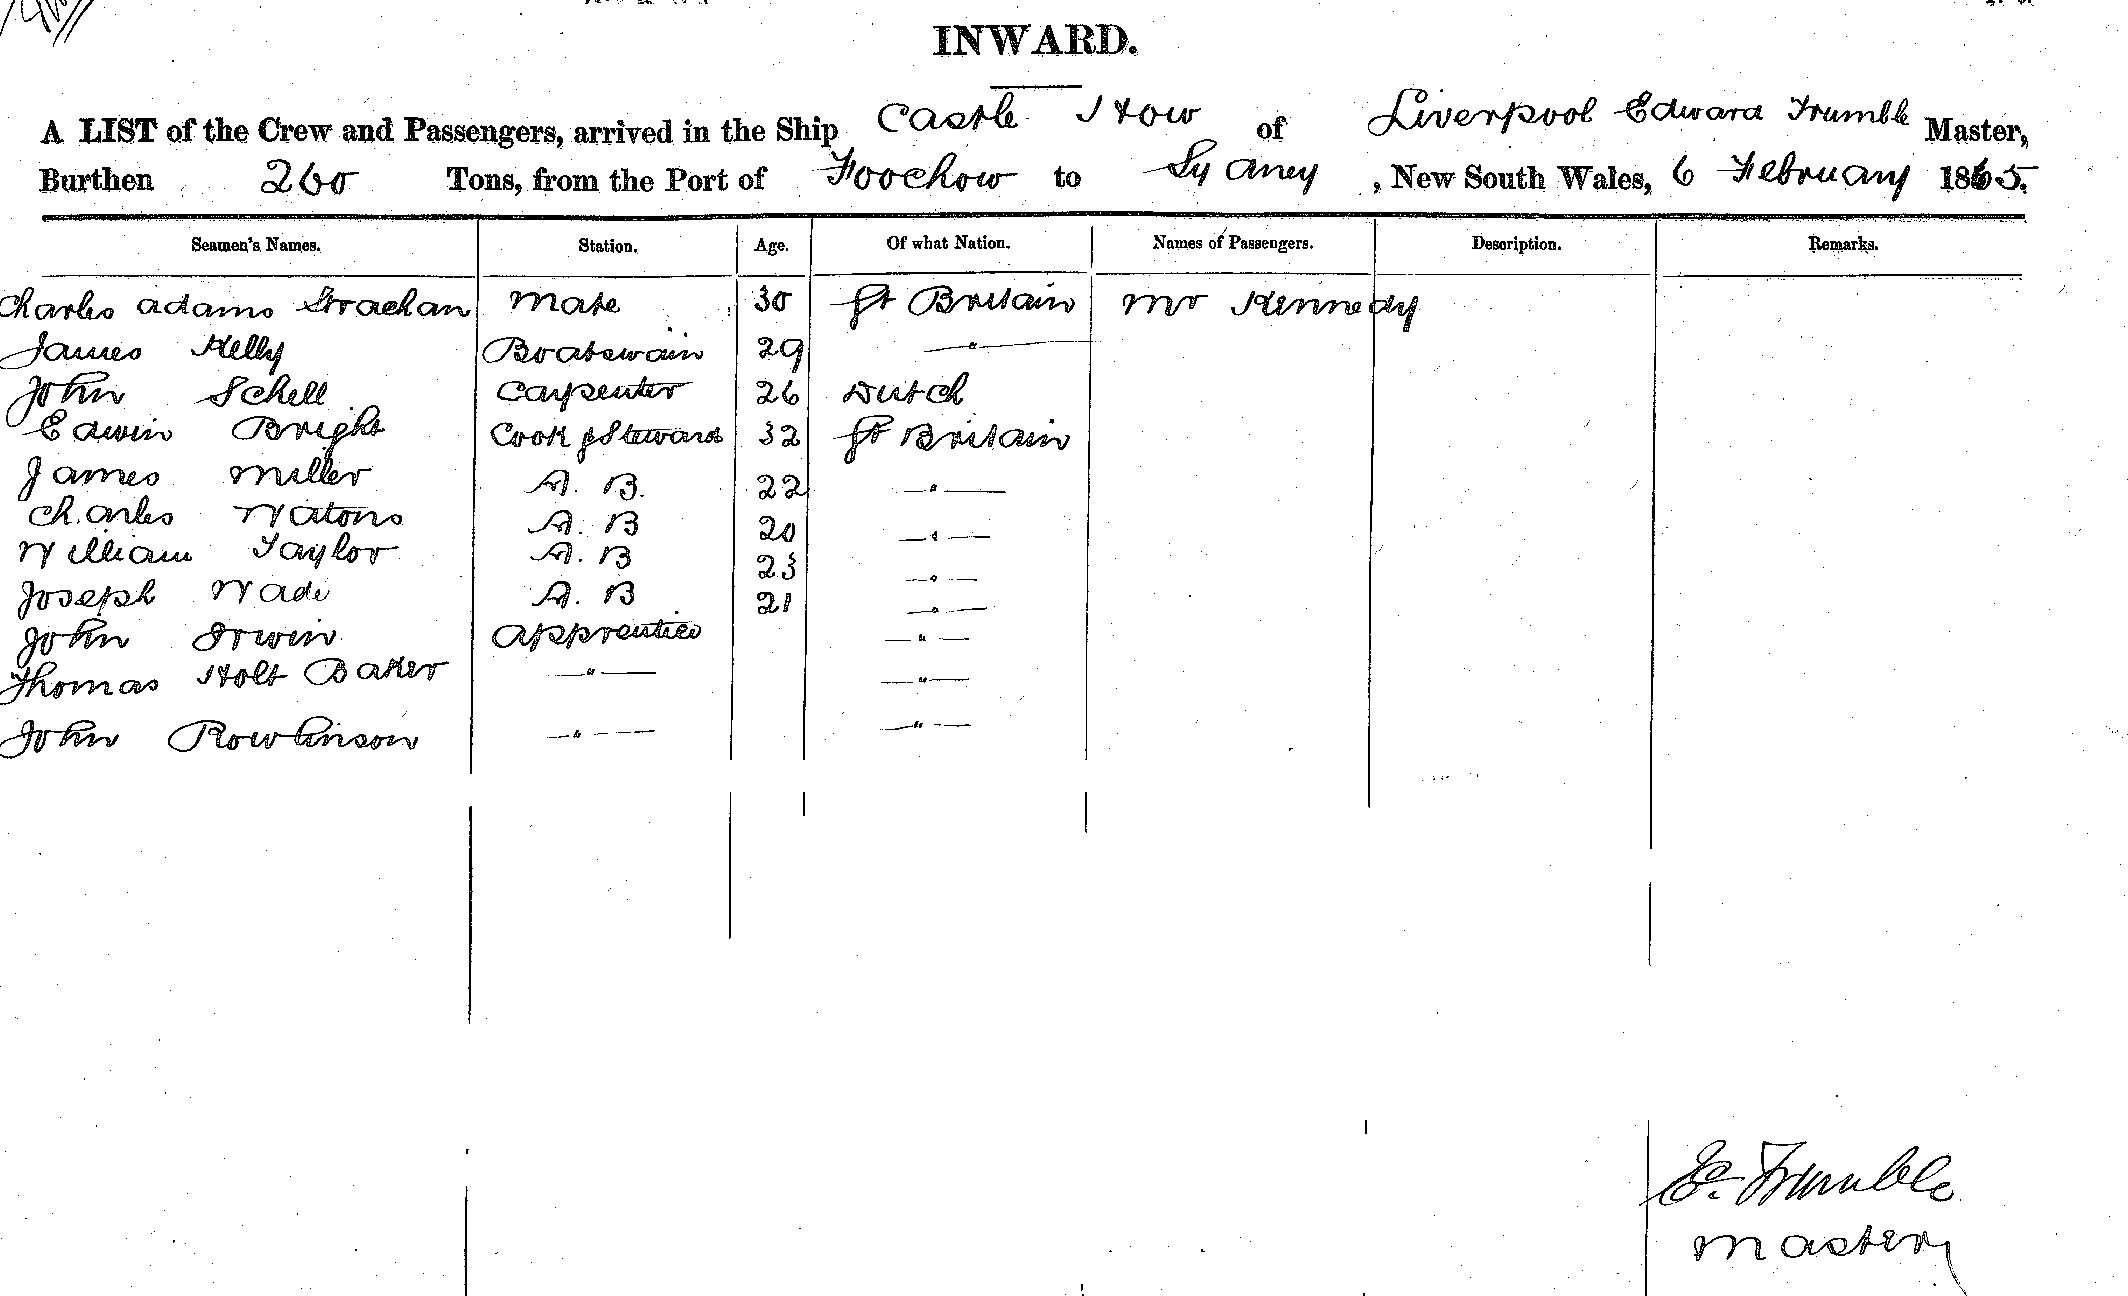 INWARD.
A LIST of the Crew and Passengers, arrived in the Ship Castle Howe of Liverpool Edward Trumble Master,
Burthen 260 Tons, from the Port of Foochow to Sydney, New South Wales, 6 February 1865.
Seamen's Names. Station. Age. Of what Nation. Names of Passengers. Description. Remarks.
Charles Adams Strachan Mate 30 Gt Britain Mr Kennedy
James Kelly Boatswain 29 "
John Schell Carpenter 26 Dutch
Edwin Bright Cook & Steward 32 Gt Britain
James Miller A. B. 22 "
Charles Watons A. B 20 "
William Taylor A. B 23 "
Joseph Wade A. B 21 "
John Irwin Apprentice "
Thomas Holt Baker " "
John Rowlinson " "
E. Trumble
Master